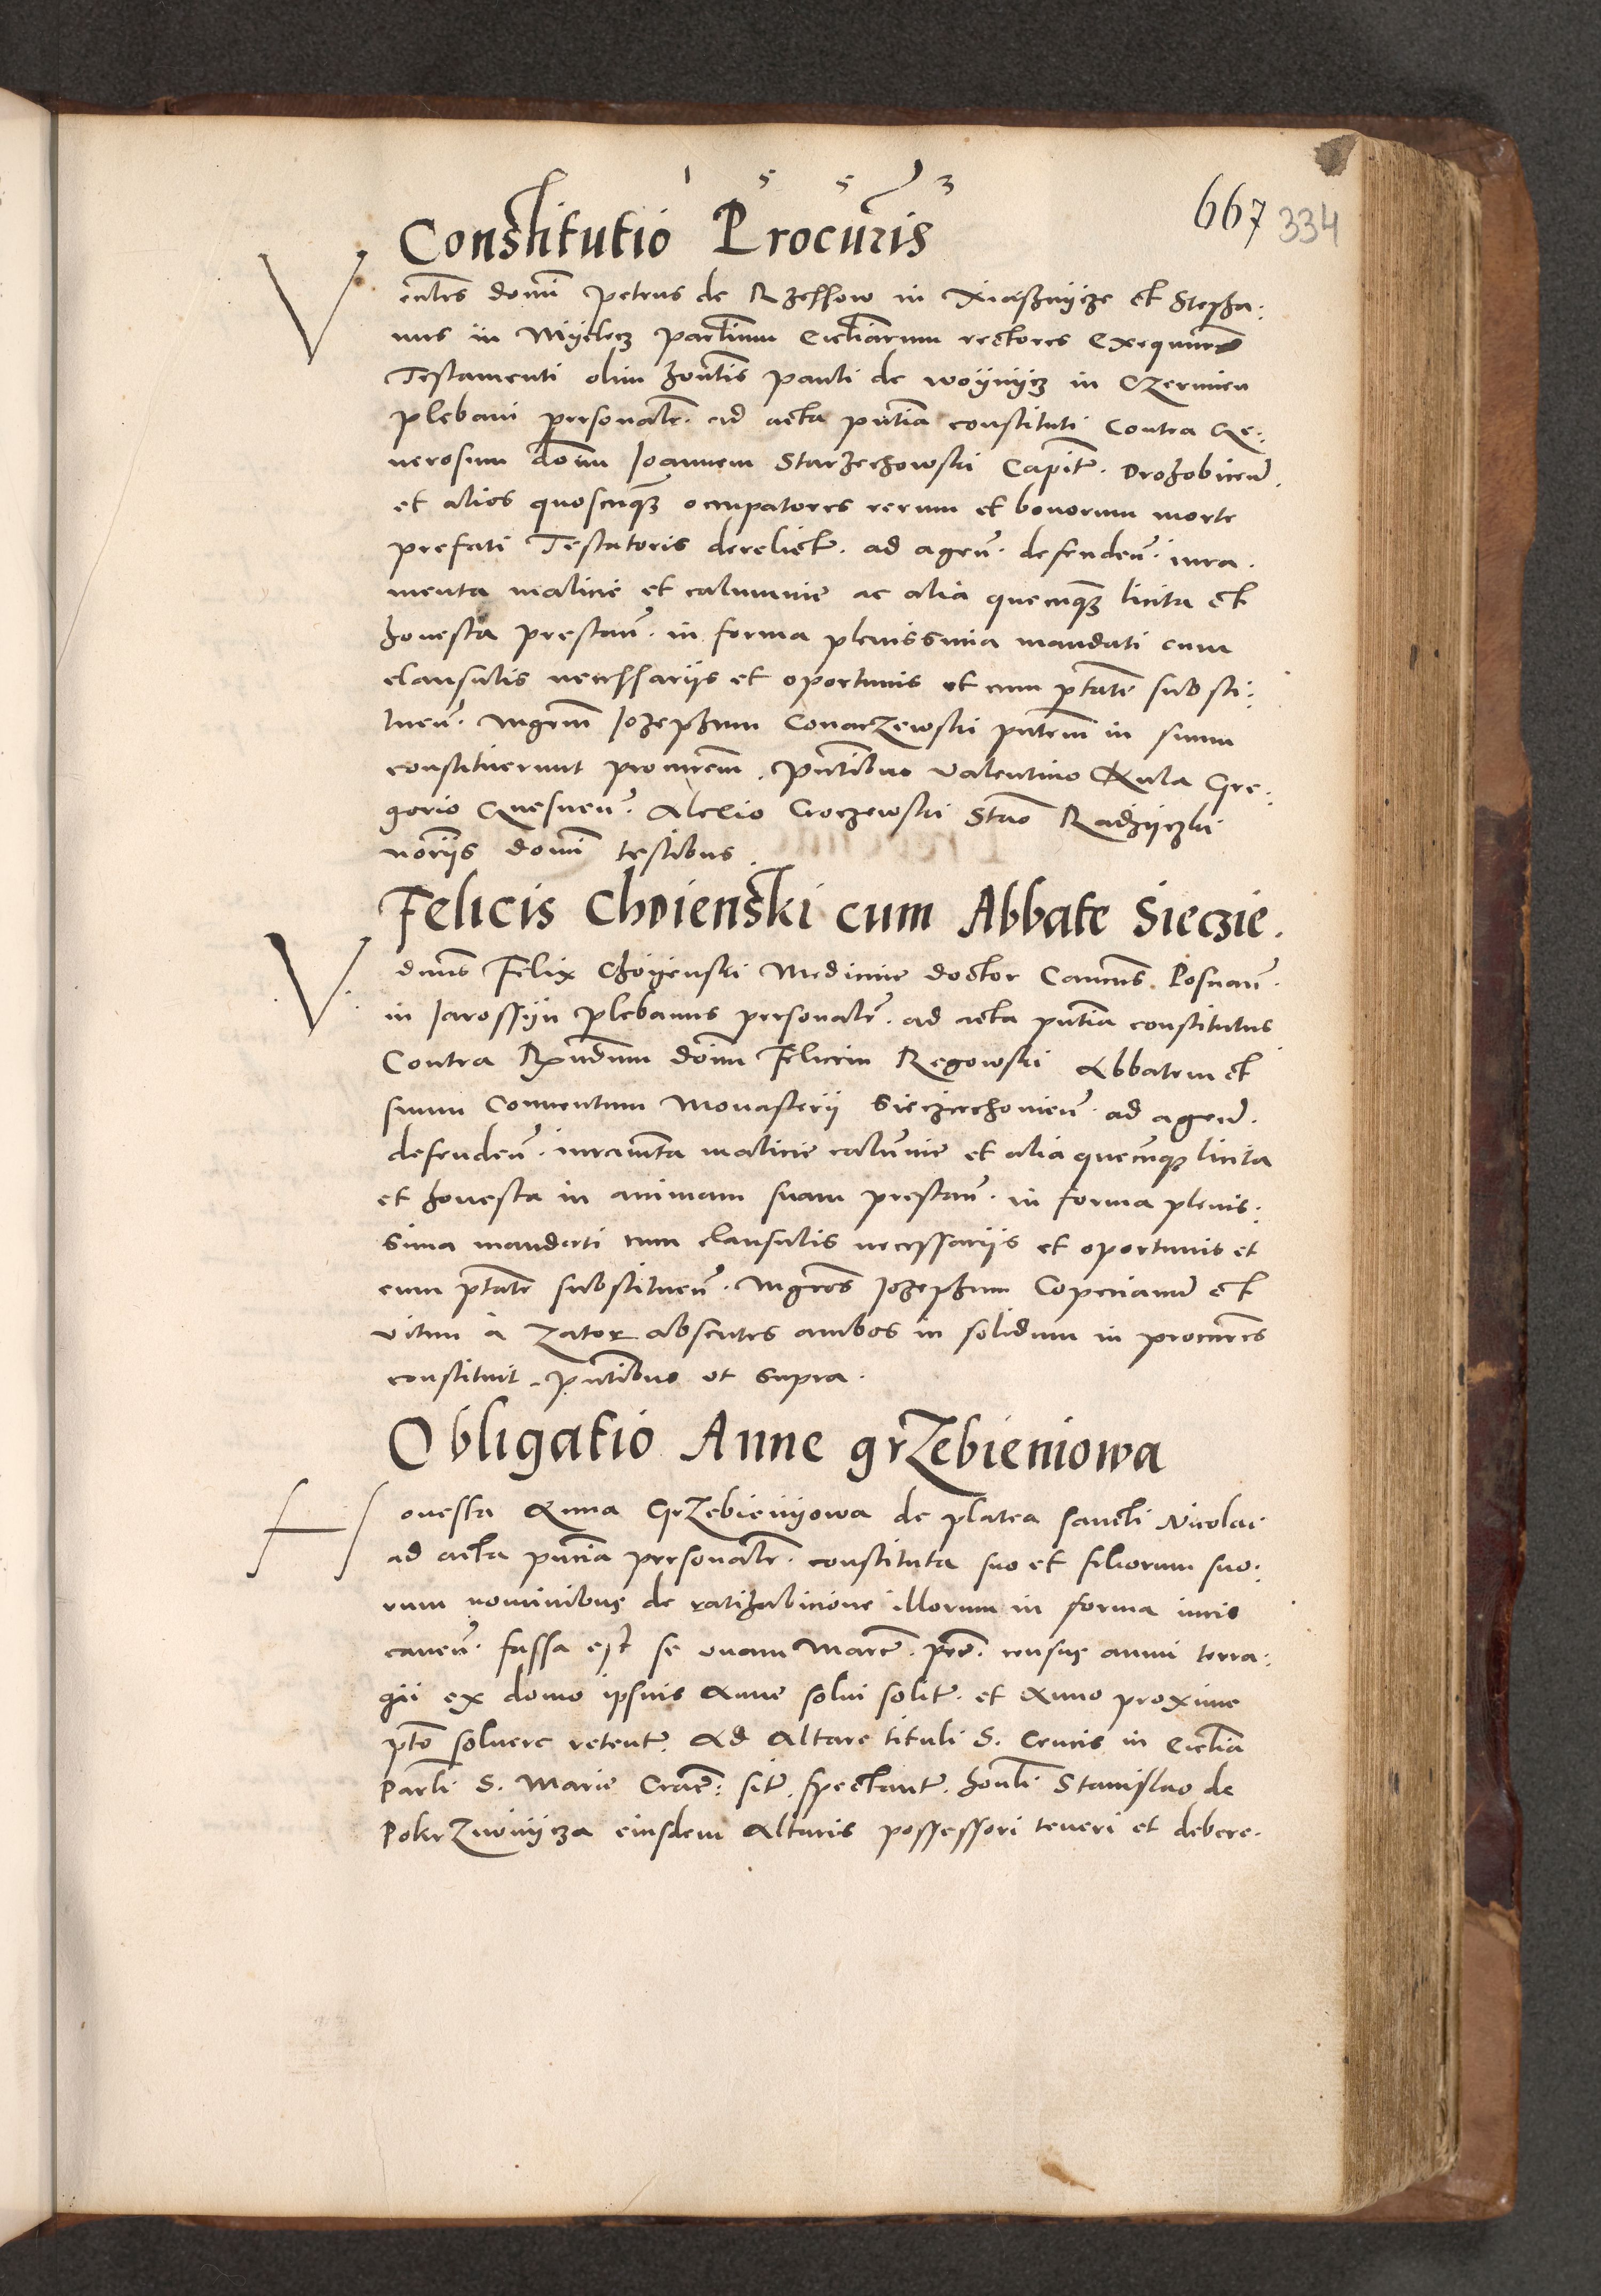 1 5 5 3
667 334
Constitutio Procuris
Venles domi Petrus de Rzessow in Xiąsznycze et Stepha:
nus in Myelecz parlium Eccliarum rectores Exequutores
Testamenti olim honlis Pauli de Woynycz in Czermien
plebani personalr. ad acta pntia constituti Contra Ge:
nerosum domi Joannem Starzechowski Capitm. Drohobicen.
et alios quoscumque occupatores rerum et bonorum morte
prefati Testatoris derelict. ad agen. defenden. iura:
menta malicie et calumnie ac alia quecumque licita et
honesta prestan. in forma plenissima mandati cum
clausulis necessariis et oportunis et cum ptate substi:
tuen. Mgrm Jozephum Conarzewski pntem in suum
constituerunt procurem. Pntibus Valentino Kula Gre:
gorio Gnesnen. Alexio Croczewski Stao Radzyczki
noriis domi testibus
Felicis Choienski cum Abbate Sieczie.
Vdnus Felix Choyenski Medicine doctor Canucus Posnan.
in Jarossyn Plebanus personalr. ad acta pntia constitutus
Contra Rndum domi Felicem Regowski Abbatem et
suum Conuentum Monasterii Sieczechouien. ad agen.
defenden. iuramta malicie calumnie et alia quecumque licita
et honesta in animam suam prestan. in forma plenis:
sima mandati cum clausulis necessariis et oportunis et
cum ptate substituen. Mgros Jozephum Copeciand et
Vitum à Zator absentes ambos in solidum in procures
constituit. Pntibus ut supra.
Obligatio Anne grzebieniowa
Honesta Anna Grzebienyowa de platea sancti Nicolai
ad acta pntia personalr. constituta suo et filiorum suo:
rum nominibus de ratihabicione illorum in forma iuris
cauen. fassa est se unam Marc. pec. census annui terra:
gii ex domo ipsius Anne solui solit. et Anno proxime
pto soluere retent. Ad Altare tituli S. Crucis in Ecclia
Parli S. Marie Crac: sit. spectant. honli Stanislao de
Pokrzywnycza eiusdem Altaris possessori teneri et debere.